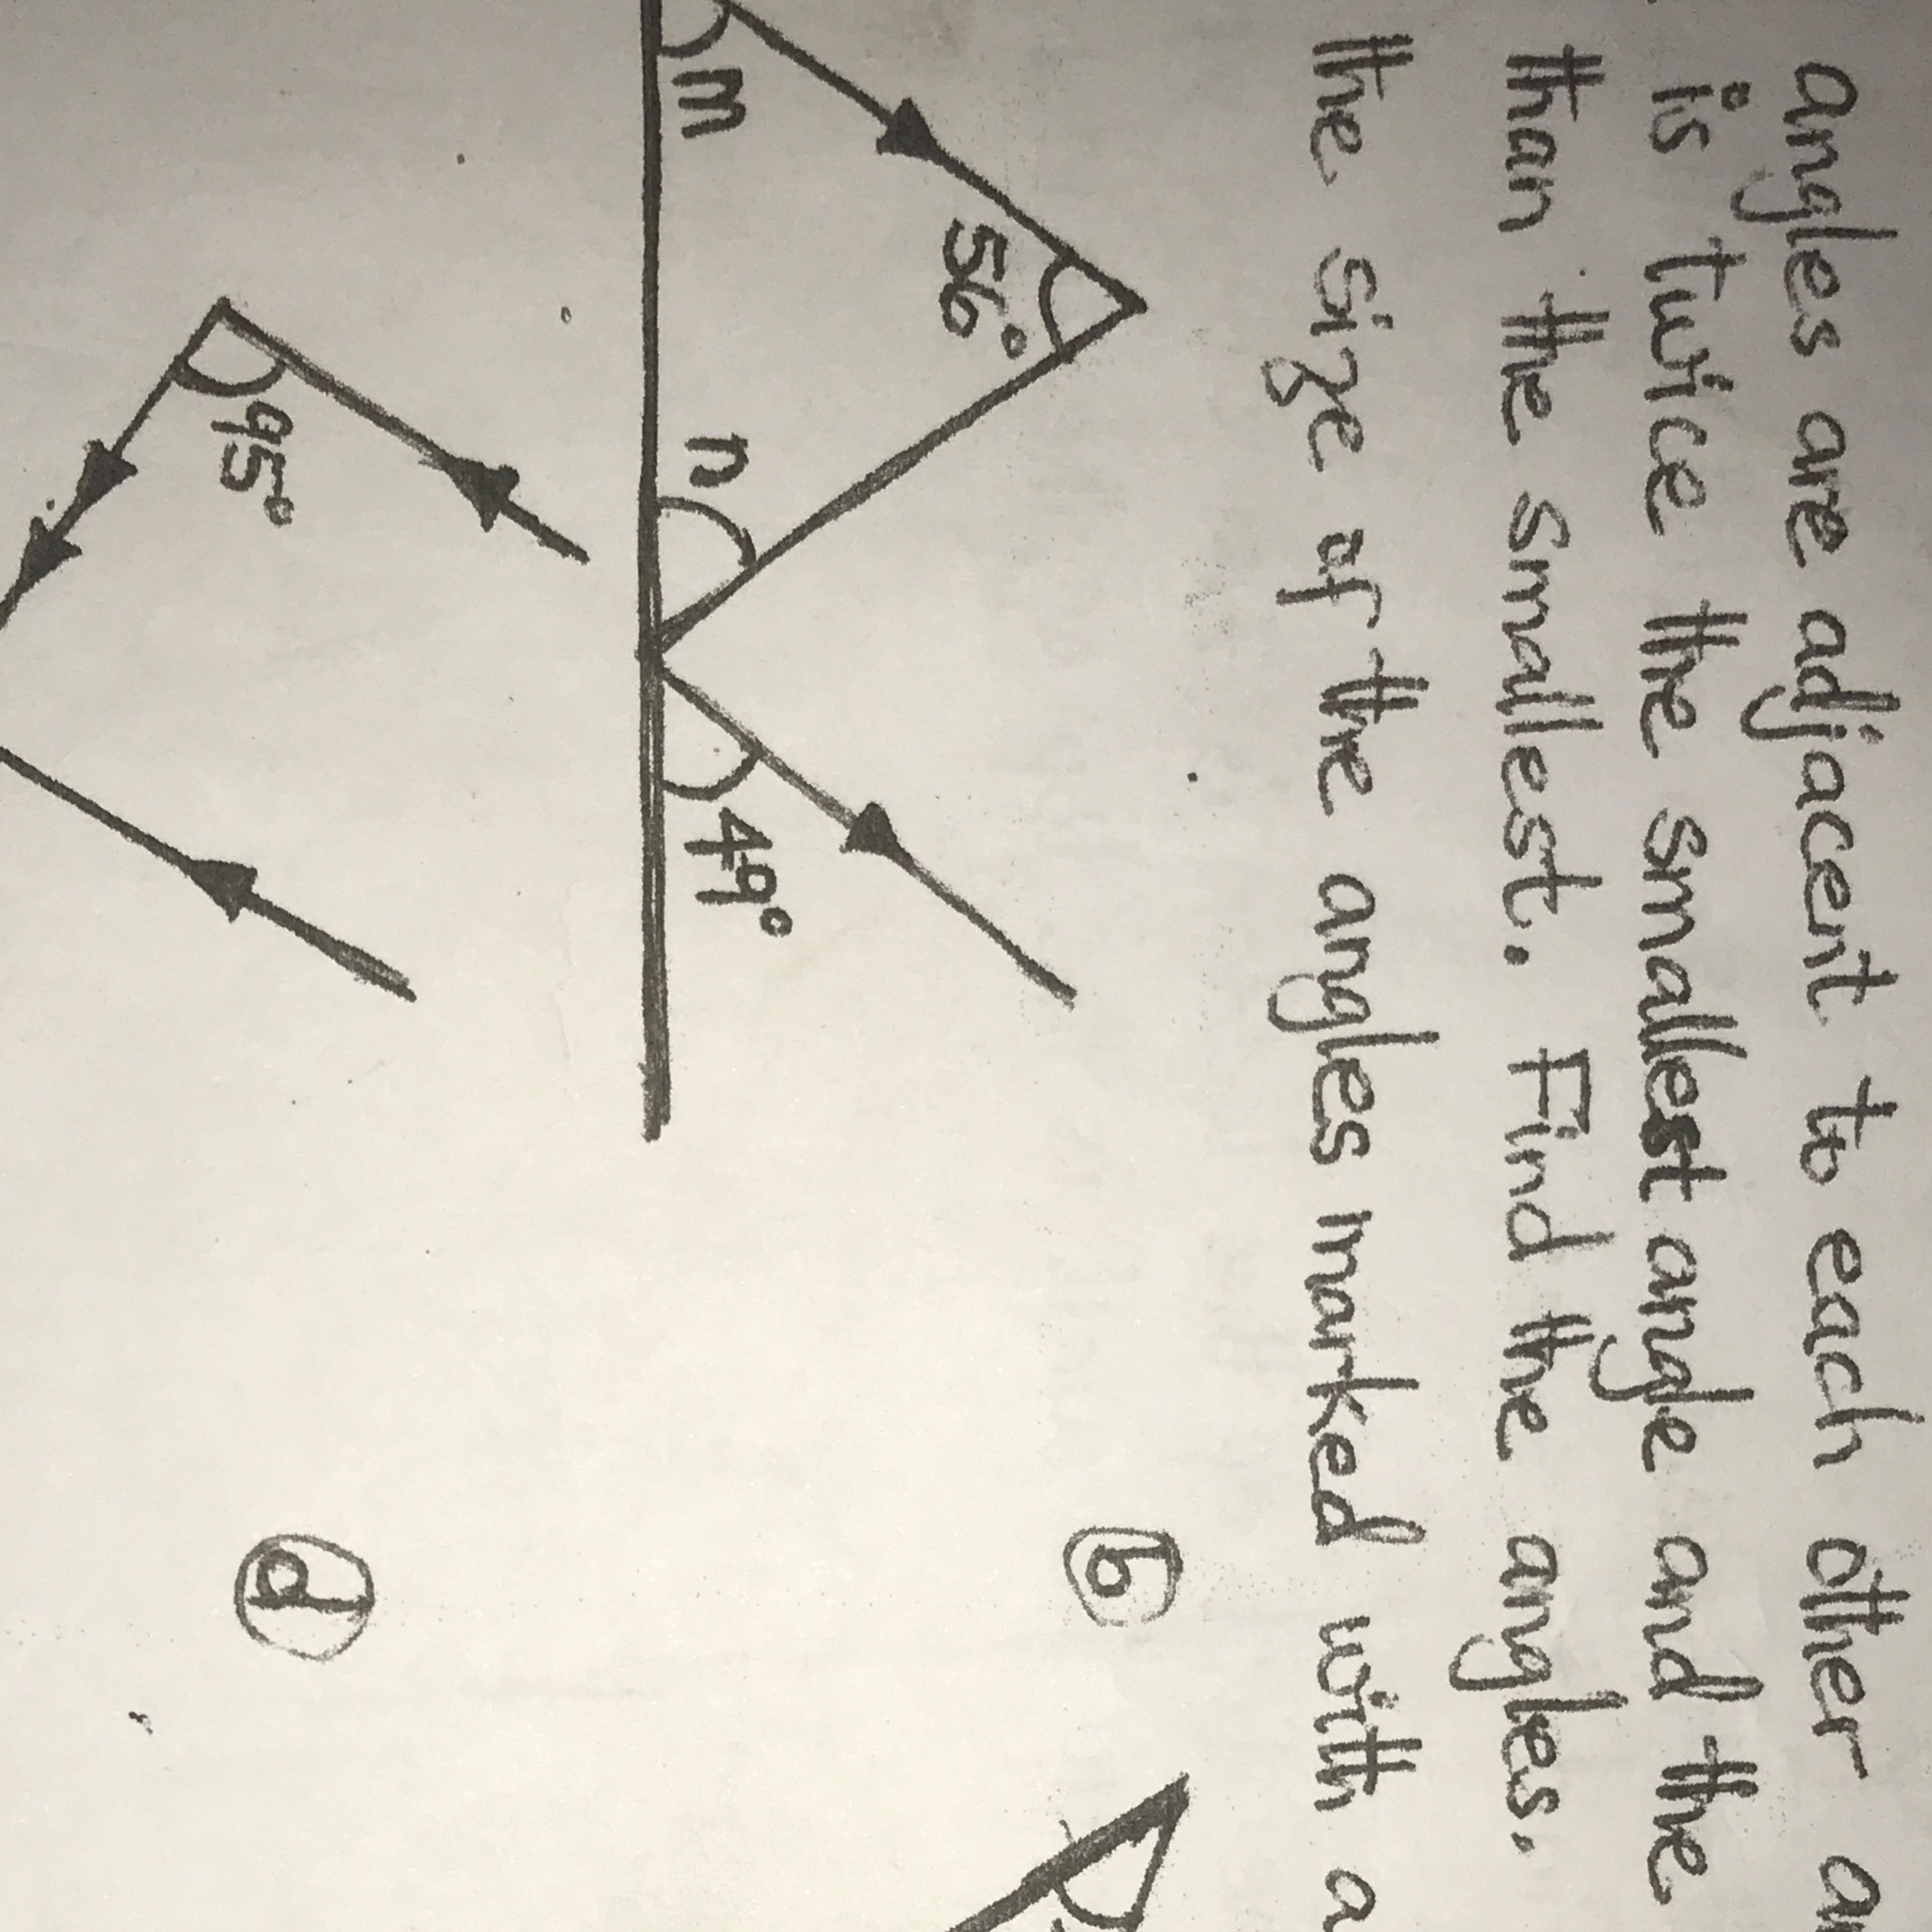 angles are adjacent to each other
is twice the smallest angle and the
than the smallest. Find the angles.
the size of the angles marked with a
b
56°
m
n
49°
d
95°